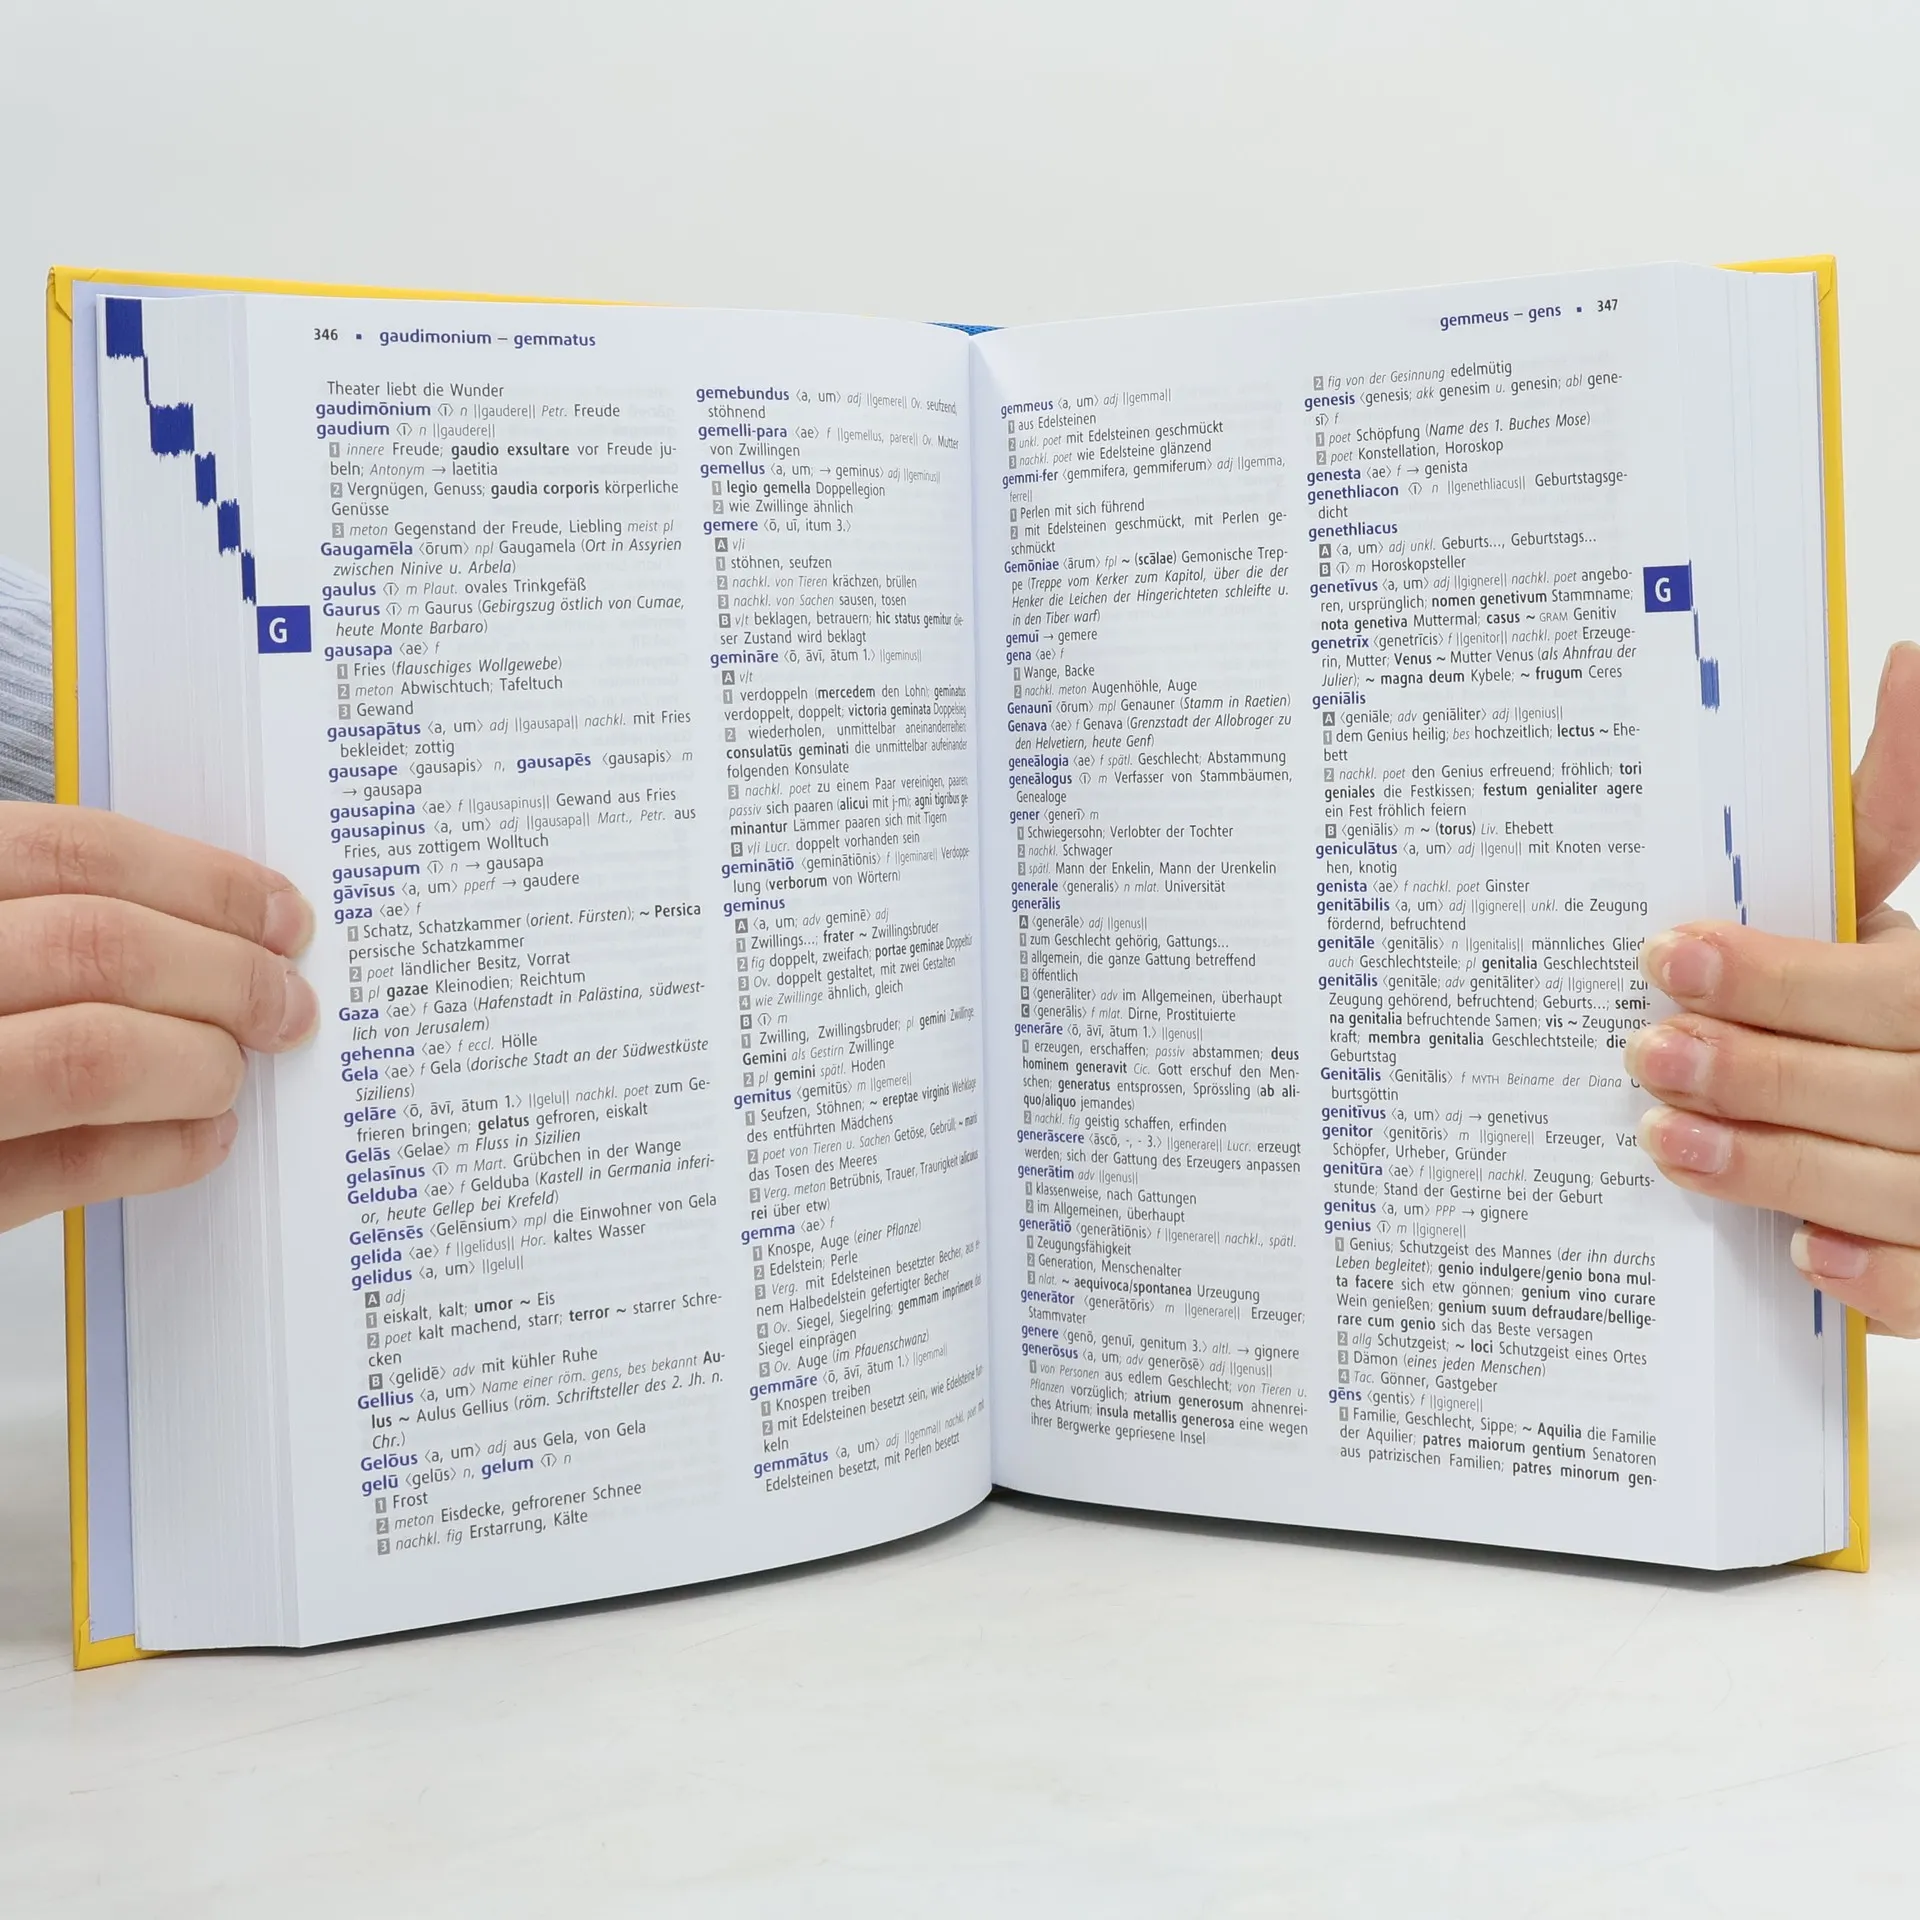 346 ▪ gaudimonium – gemmatus
Theater liebt die Wunder
gaudimōnium ⟨ī⟩ n ||gaudere|| Petr. Freude
gaudium ⟨ī⟩ n ||gaudere||
1 innere Freude; gaudio exsultare vor Freude ju-
beln; Antonym → laetitia
2 Vergnügen, Genuss; gaudia corporis körperliche
Genüsse
3 meton Gegenstand der Freude, Liebling meist pl
Gaugamēla ⟨ōrum⟩ npl Gaugamela (Ort in Assyrien
zwischen Ninive u. Arbela)
gaulus ⟨ī⟩ m Plaut. ovales Trinkgefäß
Gaurus ⟨ī⟩ m Gaurus (Gebirgszug östlich von Cumae,
heute Monte Barbaro)
gausapa ⟨ae⟩ f
1 Fries (flauschiges Wollgewebe)
2 meton Abwischtuch; Tafeltuch
3 Gewand
gausapātus ⟨a, um⟩ adj ||gausapa|| nachkl. mit Fries
bekleidet; zottig
gausape ⟨gausapis⟩ n, gausapēs ⟨gausapis⟩ m
→ gausapa
gausapina ⟨ae⟩ f ||gausapinus|| Gewand aus Fries
gausapinus ⟨a, um⟩ adj ||gausapa|| Mart., Petr. aus
Fries, aus zottigem Wolltuch
gausapum ⟨ī⟩ n → gausapa
gāvīsus ⟨a, um⟩ pperf → gaudere
gaza ⟨ae⟩ f
1 Schatz, Schatzkammer (orient. Fürsten); ~ Persica
persische Schatzkammer
2 poet ländlicher Besitz, Vorrat
3 pl gazae Kleinodien; Reichtum
Gaza ⟨ae⟩ f Gaza (Hafenstadt in Palästina, südwest-
lich von Jerusalem)
gehenna ⟨ae⟩ f eccl. Hölle
Gela ⟨ae⟩ f Gela (dorische Stadt an der Südwestküste
Siziliens)
gelāre ⟨ō, āvī, ātum 1.⟩ ||gelu|| nachkl. poet zum Ge-
frieren bringen; gelatus gefroren, eiskalt
Gelās ⟨Gelae⟩ m Fluss in Sizilien
gelasīnus ⟨ī⟩ m Mart. Grübchen in der Wange
Gelduba ⟨ae⟩ f Gelduba (Kastell in Germania inferi-
or, heute Gellep bei Krefeld)
Gelēnsēs ⟨Gelēnsium⟩ mpl die Einwohner von Gela
gelida ⟨ae⟩ f ||gelidus|| Hor. kaltes Wasser
gelidus ⟨a, um⟩ ||gelu||
A adj
1 eiskalt, kalt; umor ~ Eis
2 poet kalt machend, starr; terror ~ starrer Schre-
cken
B ⟨gelidē⟩ adv mit kühler Ruhe
Gellius ⟨a, um⟩ Name einer röm. gens, bes bekannt Au-
lus ~ Aulus Gellius (röm. Schriftsteller des 2. Jh. n.
Chr.)
Gelōus ⟨a, um⟩ adj aus Gela, von Gela
gelū ⟨gelūs⟩ n, gelum ⟨ī⟩ n
1 Frost
2 meton Eisdecke, gefrorener Schnee
3 nachkl. fig Erstarrung, Kälte
G
gemebundus ⟨a, um⟩ adj ||gemere|| Ov. seufzend,
stöhnend
gemelli-para ⟨ae⟩ f ||gemellus, parere|| Ov. Mutter
von Zwillingen
gemellus ⟨a, um; → geminus⟩ adj ||geminus||
1 legio gemella Doppellegion
2 wie Zwillinge ähnlich
gemere ⟨ō, uī, itum 3.⟩
A v/i
1 stöhnen, seufzen
2 nachkl. von Tieren krächzen, brüllen
3 nachkl. von Sachen sausen, tosen
B v/t beklagen, betrauern; hic status gemitur die-
ser Zustand wird beklagt
gemināre ⟨ō, āvī, ātum 1.⟩ ||geminus||
A v/t
1 verdoppeln (mercedem den Lohn); geminatus
verdoppelt, doppelt; victoria geminata Doppelsieg
2 wiederholen, unmittelbar aneinanderreihen;
consulatūs geminati die unmittelbar aufeinander
folgenden Konsulate
3 nachkl. poet zu einem Paar vereinigen, paaren;
passiv sich paaren (alicui mit j-m); agni tigribus ge-
minantur Lämmer paaren sich mit Tigern
B v/i Lucr. doppelt vorhanden sein
geminātiō ⟨geminātiōnis⟩ f ||geminare|| Verdoppe-
lung (verborum von Wörtern)
geminus
A ⟨a, um; adv geminē⟩ adj
1 Zwillings...; frater ~ Zwillingsbruder
2 fig doppelt, zweifach; portae geminae Doppeltür
3 Ov. doppelt gestaltet, mit zwei Gestalten
4 wie Zwillinge ähnlich, gleich
B ⟨ī⟩ m
1 Zwilling, Zwillingsbruder; pl gemini Zwillinge
Gemini als Gestirn Zwillinge
2 pl gemini spätl. Hoden
gemitus ⟨gemitūs⟩ m ||gemere||
1 Seufzen, Stöhnen; ~ ereptae virginis Wehklage
des entführten Mädchens
2 poet von Tieren u. Sachen Getöse, Gebrüll; ~ maris
das Tosen des Meeres
3 Verg. meton Betrübnis, Trauer, Traurigkeit (alicuius
rei über etw)
gemma ⟨ae⟩ f
1 Knospe, Auge (einer Pflanze)
2 Edelstein; Perle
3 Verg. mit Edelsteinen besetzter Becher, aus
nem Halbedelstein gefertigter Becher
4 Ov. Siegel, Siegelring; gemmam imprimere das
Siegel einprägen
5 Ov. Auge (im Pfauenschwanz)
gemmāre ⟨ō, āvī, ātum 1.⟩ ||gemma||
1 Knospen treiben
2 mit Edelsteinen besetzt sein, wie Edelsteine fun-
keln
gemmātus ⟨a, um⟩ adj ||gemma|| nachkl. poet mit
Edelsteinen besetzt, mit Perlen besetzt
gemmeus – gens ▪ 347
gemmeus ⟨a, um⟩ adj ||gemma||
1 aus Edelsteinen
2 unkl. poet mit Edelsteinen geschmückt
3 nachkl. poet wie Edelsteine glänzend
gemmi-fer ⟨gemmifera, gemmiferum⟩ adj ||gemma,
ferre||
1 Perlen mit sich führend
2 mit Edelsteinen geschmückt, mit Perlen ge-
schmückt
Gemōniae ⟨ārum⟩ fpl ~ (scālae) Gemonische Trep-
pe (Treppe vom Kerker zum Kapitol, über die der
Henker die Leichen der Hingerichteten schleifte u.
in den Tiber warf)
gemuī → gemere
gena ⟨ae⟩ f
1 Wange, Backe
2 nachkl. meton Augenhöhle, Auge
Genaunī ⟨ōrum⟩ mpl Genauner (Stamm in Raetien)
Genava ⟨ae⟩ f Genava (Grenzstadt der Allobroger zu
den Helvetiern, heute Genf)
geneālogia ⟨ae⟩ f spätl. Geschlecht; Abstammung
geneālogus ⟨ī⟩ m Verfasser von Stammbäumen,
Genealoge
gener ⟨generī⟩ m
1 Schwiegersohn; Verlobter der Tochter
2 nachkl. Schwager
3 spätl. Mann der Enkelin, Mann der Urenkelin
generale ⟨generalis⟩ n mlat. Universität
generālis
A ⟨generāle⟩ adj ||genus||
1 zum Geschlecht gehörig, Gattungs...
2 allgemein, die ganze Gattung betreffend
3 öffentlich
B ⟨generāliter⟩ adv im Allgemeinen, überhaupt
C ⟨generālis⟩ f mlat. Dirne, Prostituierte
generāre ⟨ō, āvī, ātum 1.⟩ ||genus||
1 erzeugen, erschaffen; passiv abstammen; deus
hominem generavit Cic. Gott erschuf den Men-
schen; generatus entsprossen, Sprössling (ab ali-
quo/aliquo jemandes)
2 nachkl. fig geistig schaffen, erfinden
generāscere ⟨āscō, -, - 3.⟩ ||generare|| Lucr. erzeugt
werden; sich der Gattung des Erzeugers anpassen
generātim adv ||genus||
1 klassenweise, nach Gattungen
2 im Allgemeinen, überhaupt
generātiō ⟨generātiōnis⟩ f ||generare|| nachkl., spätl.
1 Zeugungsfähigkeit
2 Generation, Menschenalter
3 nlat. ~ aequivoca/spontanea Urzeugung
generātor ⟨generātōris⟩ m ||generare|| Erzeuger;
Stammvater
genere ⟨genō, genuī, genitum 3.⟩ altl. → gignere
generōsus ⟨a, um; adv generōsē⟩ adj ||genus||
1 von Personen aus edlem Geschlecht; von Tieren u.
Pflanzen vorzüglich; atrium generosum ahnenrei-
ches Atrium; insula metallis generosa eine wegen
ihrer Bergwerke gepriesene Insel
2 fig von der Gesinnung edelmütig
genesis ⟨genesis; akk genesim u. genesin; abl gene-
sī⟩ f
1 poet Schöpfung (Name des 1. Buches Mose)
2 poet Konstellation, Horoskop
genesta ⟨ae⟩ f → genista
genethliacon ⟨ī⟩ n ||genethliacus|| Geburtstagsge-
dicht
genethliacus
A ⟨a, um⟩ adj unkl. Geburts..., Geburtstags...
B ⟨ī⟩ m Horoskopsteller
genetīvus ⟨a, um⟩ adj ||gignere|| nachkl. poet angebo-
ren, ursprünglich; nomen genetivum Stammname;
nota genetiva Muttermal; casus ~ GRAM Genitiv
genetrīx ⟨genetrīcis⟩ f ||genitor|| nachkl. poet Erzeuge-
rin, Mutter; Venus ~ Mutter Venus (als Ahnfrau der
Julier); ~ magna deum Kybele; ~ frugum Ceres
geniālis
A ⟨geniāle; adv geniāliter⟩ adj ||genius||
1 dem Genius heilig; bes hochzeitlich; lectus ~ Ehe-
bett
2 nachkl. poet den Genius erfreuend; fröhlich; tori
geniales die Festkissen; festum genialiter agere
ein Fest fröhlich feiern
B ⟨geniālis⟩ m ~ (torus) Liv. Ehebett
geniculātus ⟨a, um⟩ adj ||genu|| mit Knoten verse-
hen, knotig
genista ⟨ae⟩ f nachkl. poet Ginster
genitābilis ⟨a, um⟩ adj ||gignere|| unkl. die Zeugung
fördernd, befruchtend
genitāle ⟨genitālis⟩ n ||genitalis|| männliches Glied
auch Geschlechtsteile; pl genitalia Geschlechtsteil
genitālis ⟨genitāle; adv genitāliter⟩ adj ||gignere|| zur
Zeugung gehörend, befruchtend; Geburts...; semi-
na genitalia befruchtende Samen; vis ~ Zeugungs-
kraft; membra genitalia Geschlechtsteile; die
Geburtstag
Genitālis ⟨Genitālis⟩ f MYTH Beiname der Diana
burtsgöttin
genitīvus ⟨a, um⟩ adj → genetivus
genitor ⟨genitōris⟩ m ||gignere|| Erzeuger, Vat
Schöpfer, Urheber, Gründer
genitūra ⟨ae⟩ f ||gignere|| nachkl. Zeugung; Geburts-
stunde; Stand der Gestirne bei der Geburt
genitus ⟨a, um⟩ PPP → gignere
genius ⟨ī⟩ m ||gignere||
1 Genius; Schutzgeist des Mannes (der ihn durchs
Leben begleitet); genio indulgere/genio bona mul-
ta facere sich etw gönnen; genium vino curare
Wein genießen; genium suum defraudare/bellige-
rare cum genio sich das Beste versagen
2 allg Schutzgeist; ~ loci Schutzgeist eines Ortes
3 Dämon (eines jeden Menschen)
4 Tac. Gönner, Gastgeber
gēns ⟨gentis⟩ f ||gignere||
1 Familie, Geschlecht, Sippe; ~ Aquilia die Familie
der Aquilier; patres maiorum gentium Senatoren
aus patrizischen Familien; patres minorum gen-
G